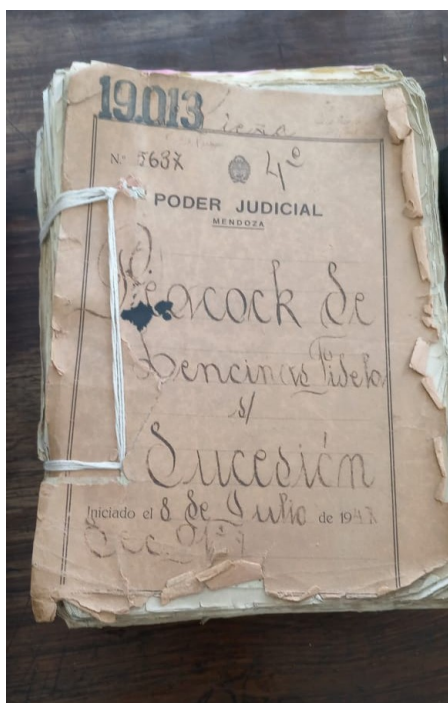 19.013
Nº 5637 4º
PODER JUDICIAL
MENDOZA
Peacock de
Lencinas Fidela
s/
Sucesión
Iniciado el 8 de Julio de 1947
Sec. Nº 1